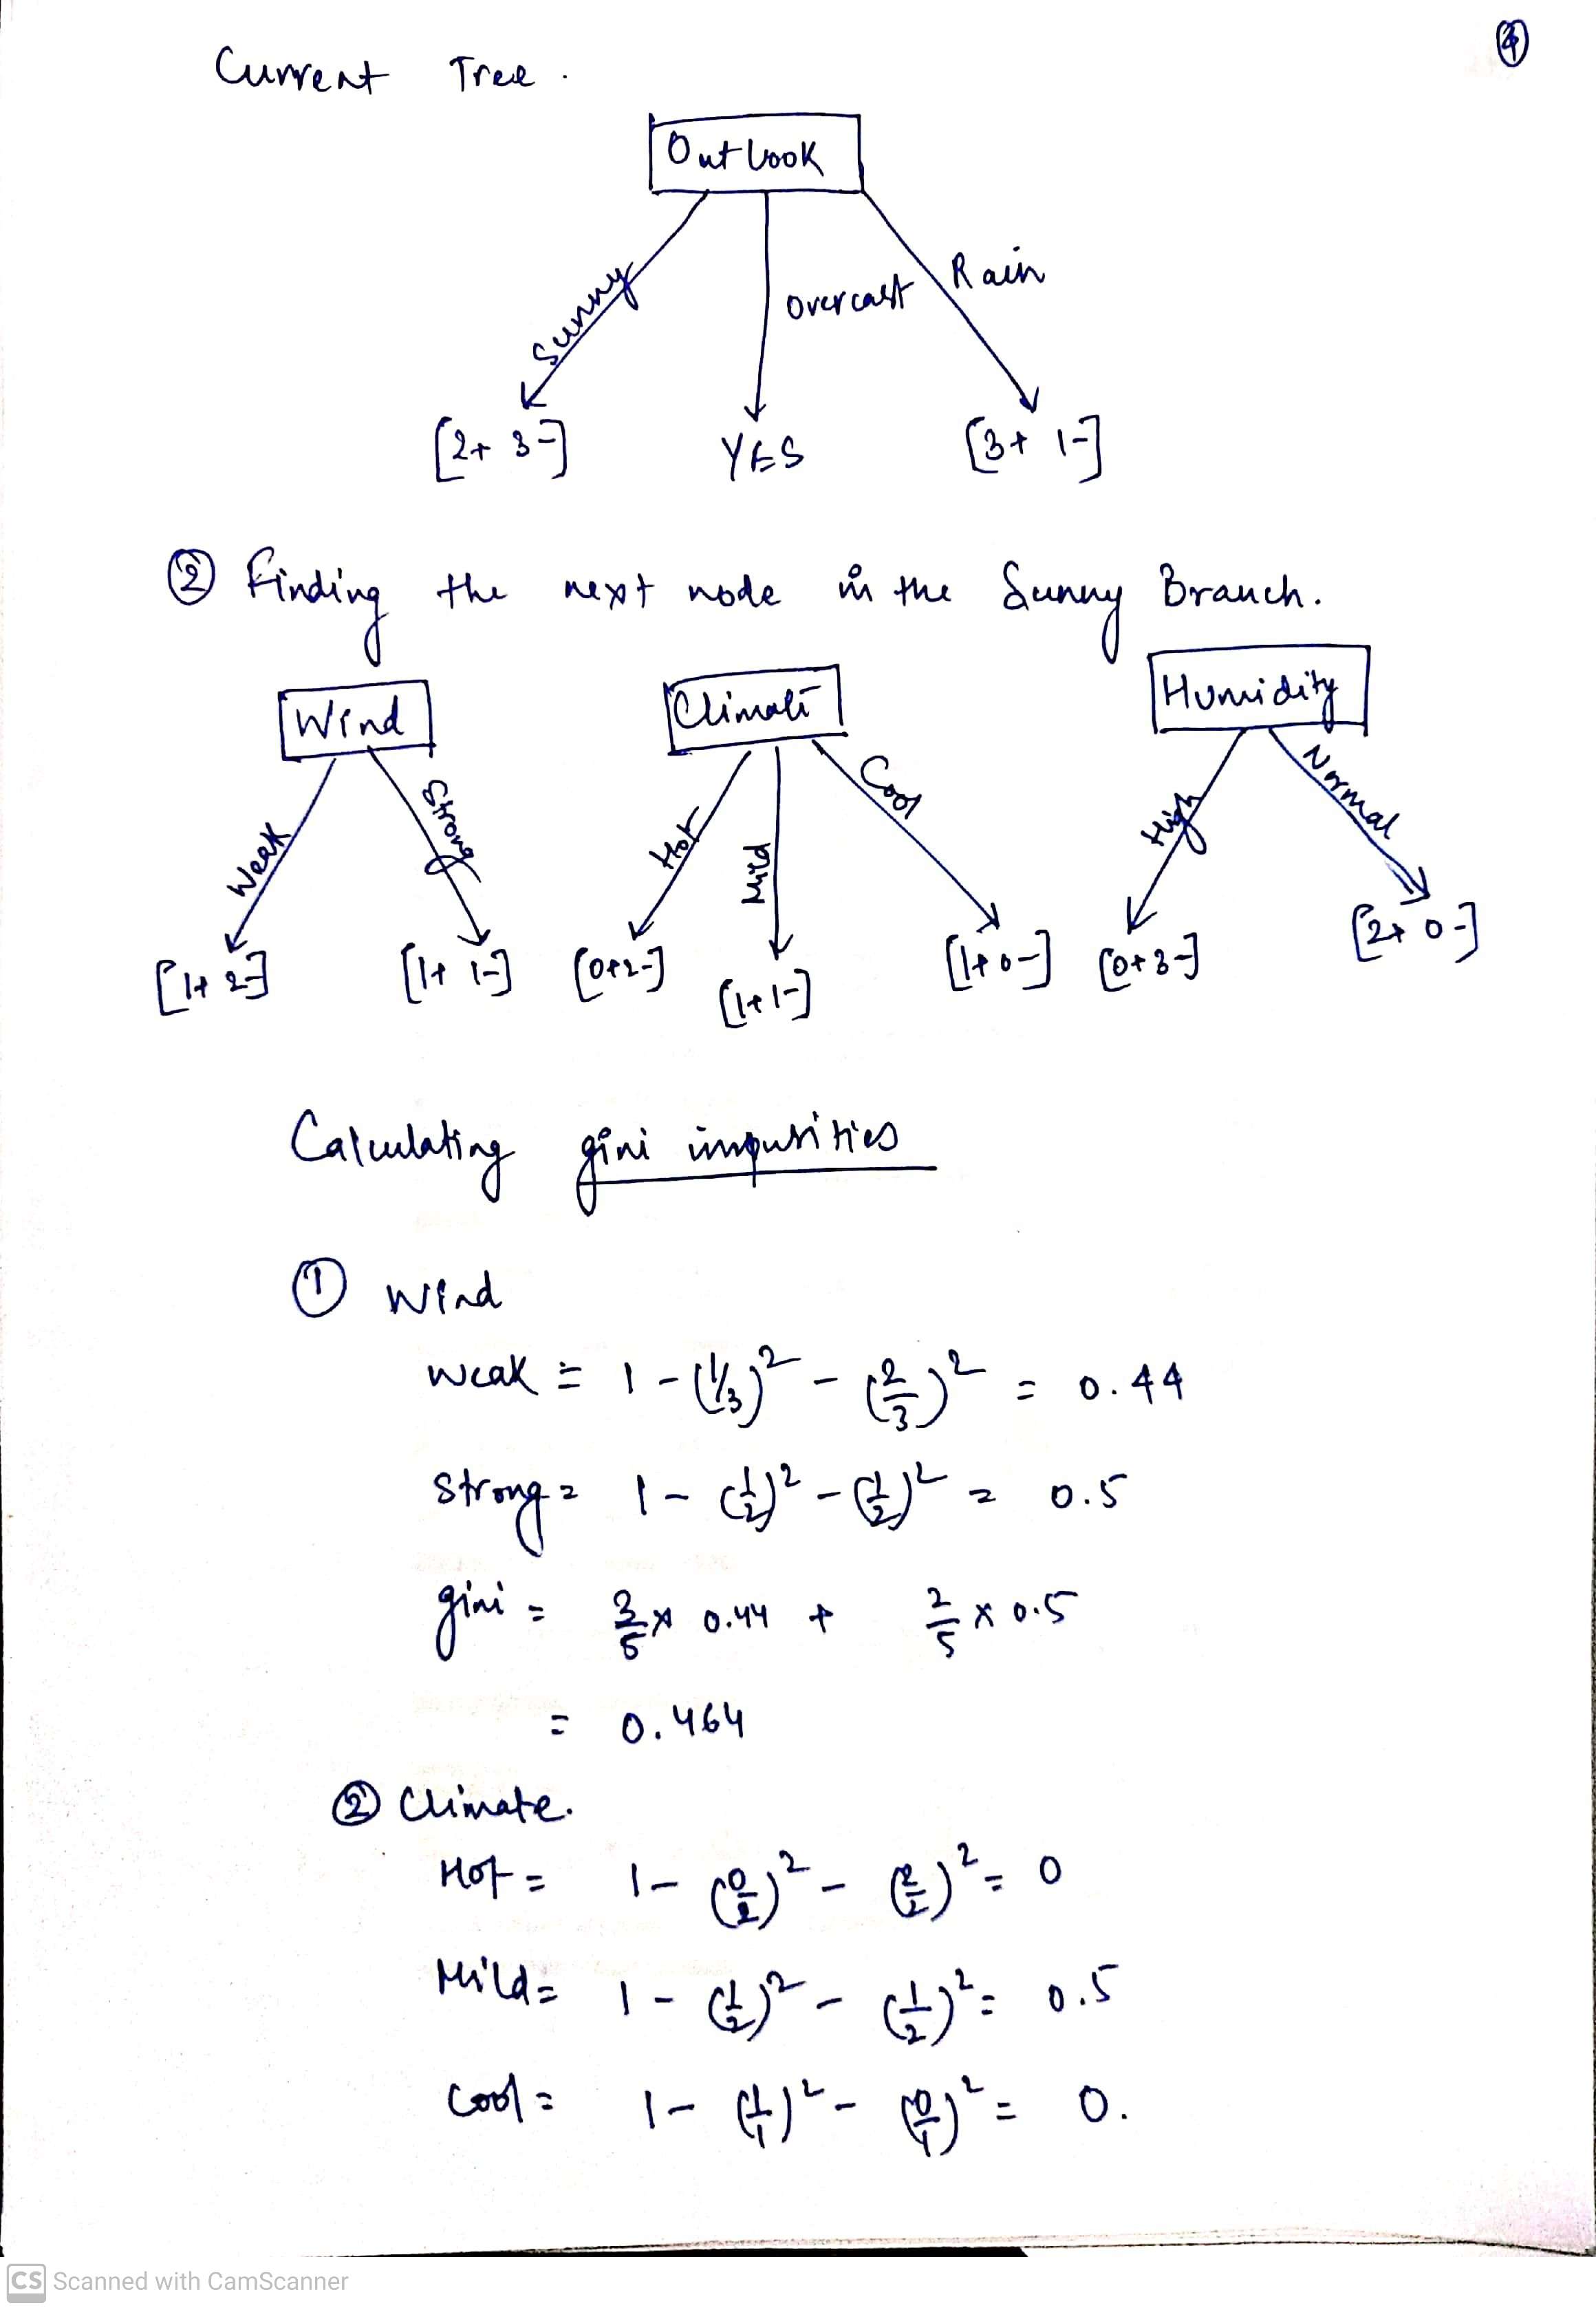 ④
Current Tree.
Outlook
Sunny overcast Rain
[2+ 3-] YES [3+ 1-]
② Finding the next node in the Sunny Branch.
Wind Climate Humidity
Weak Strong Hot Mild Cool High Normal
[1+ 2-] [1+ 1-] [0+2-] [1+1-] [1+0-] [0+3-] [2+ 0-]
Calculating gini impurities
① Wind
Weak = 1 - (1/3)² - (2/3)² = 0.44
Strong = 1 - (1/2)² - (1/2)² = 0.5
gini = 3/5 x 0.44 + 2/5 x 0.5
= 0.464
② Climate.
Hot = 1 - (0/2)² - (2/2)² = 0
Mild = 1 - (1/2)² - (1/2)² = 0.5
Cool = 1 - (1/1)² - (0/1)² = 0.
CS Scanned with CamScanner